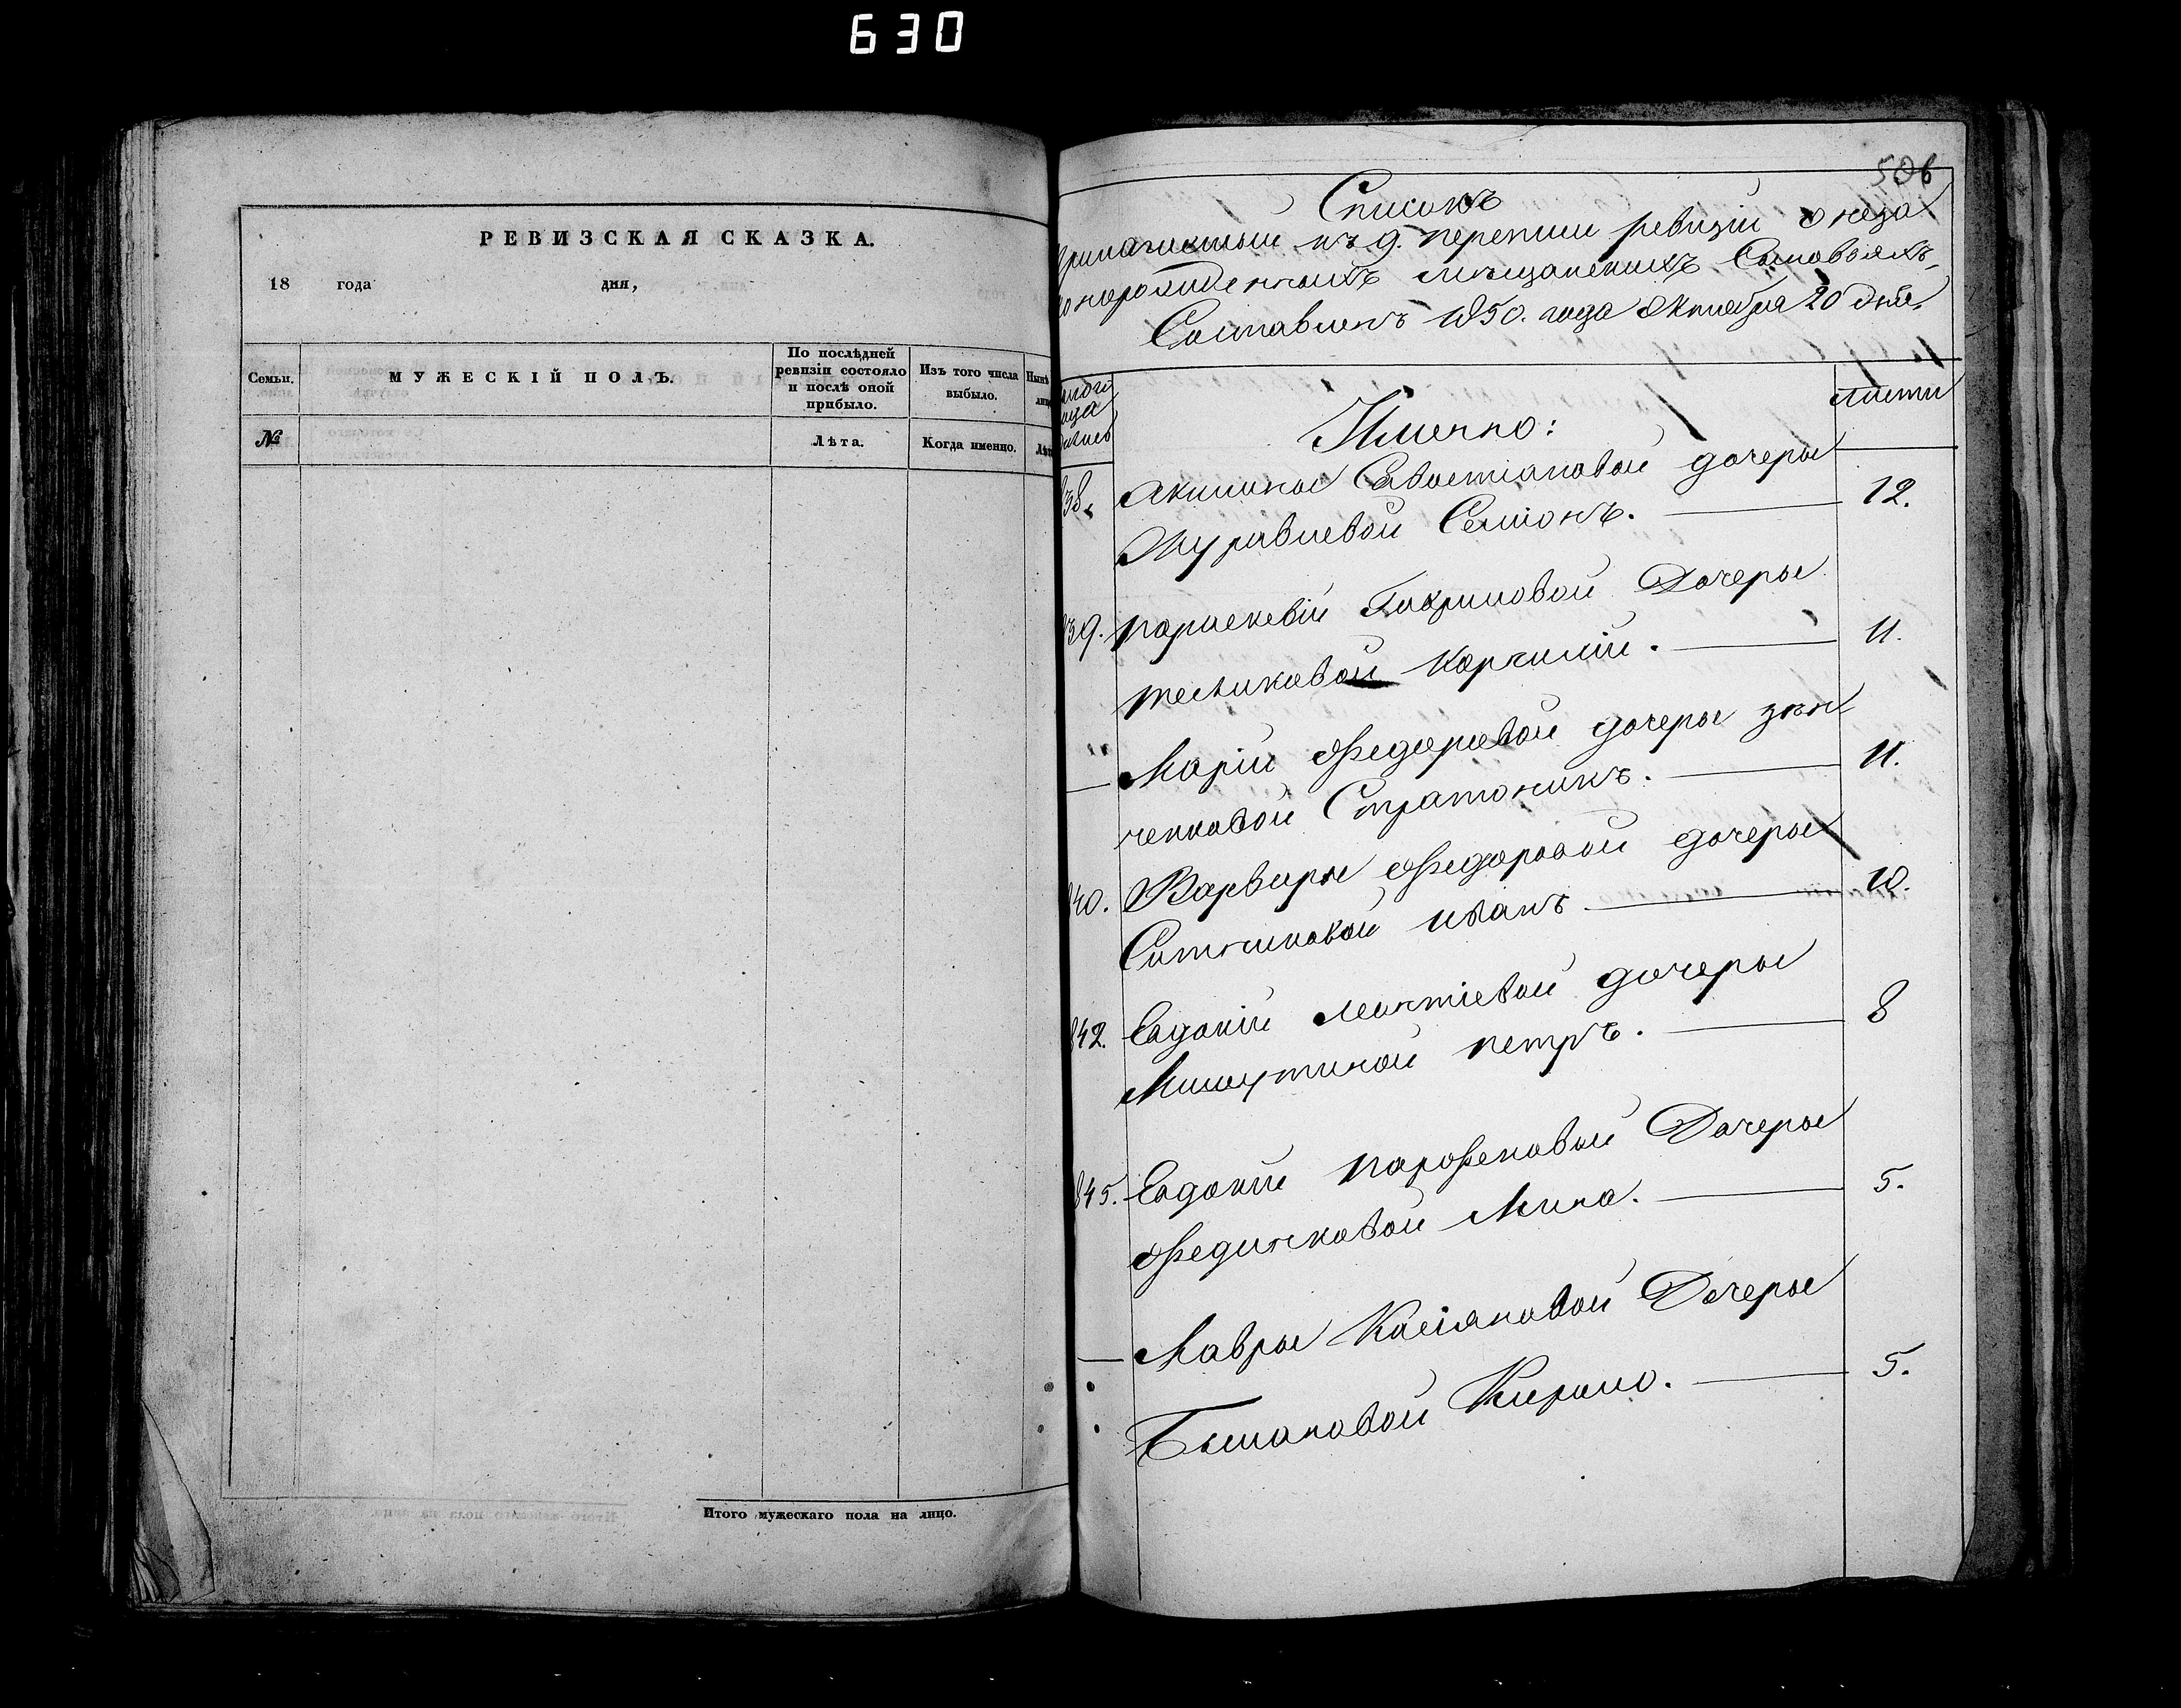 630
РЕВИЗСКАЯ СКАЗКА.
18 года дня,
Семьи.
МУЖЕСКІЙ ПОЛЪ.
По послѣдней ревизіи состояло и послѣ оной прибыло.
Изъ того числа выбыло.
№
Лѣта.
Когда именно.
Итого мужескаго пола на лицо.
506
Списокъ
къ 9. переписи ревизіи о неза
конорожденныхъ мѣщанскихъ Сыновьяхъ
Составленъ 1850. года Октября 20 дня.
Имянно:
лѣты
38. Акилины Савостіановой дочеры
Журавлевой Семіонъ. 12.
39. Параскевіи Гавриловой Дочеры
Корнилій. 11.
Маріи Федоровой дочеры зен
ченковой Стратоникъ. 11.
40. Варвары Федоровой дочеры
Ситниковой Иванъ 10.
842. Евдокіи дочеры
Мишутиной петръ. 8
845. Евдокіи парфеновой Дочеры
Фединковой Мина. 5.
Мавры Касіяновой Дочеры
Кирило. 5.